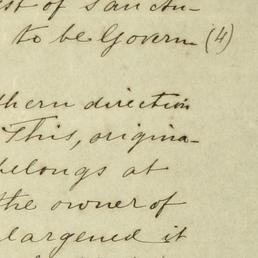 st of San An-
to be Govern (4)
thern direction
This, origina-
belongs at
the owner of
largened it